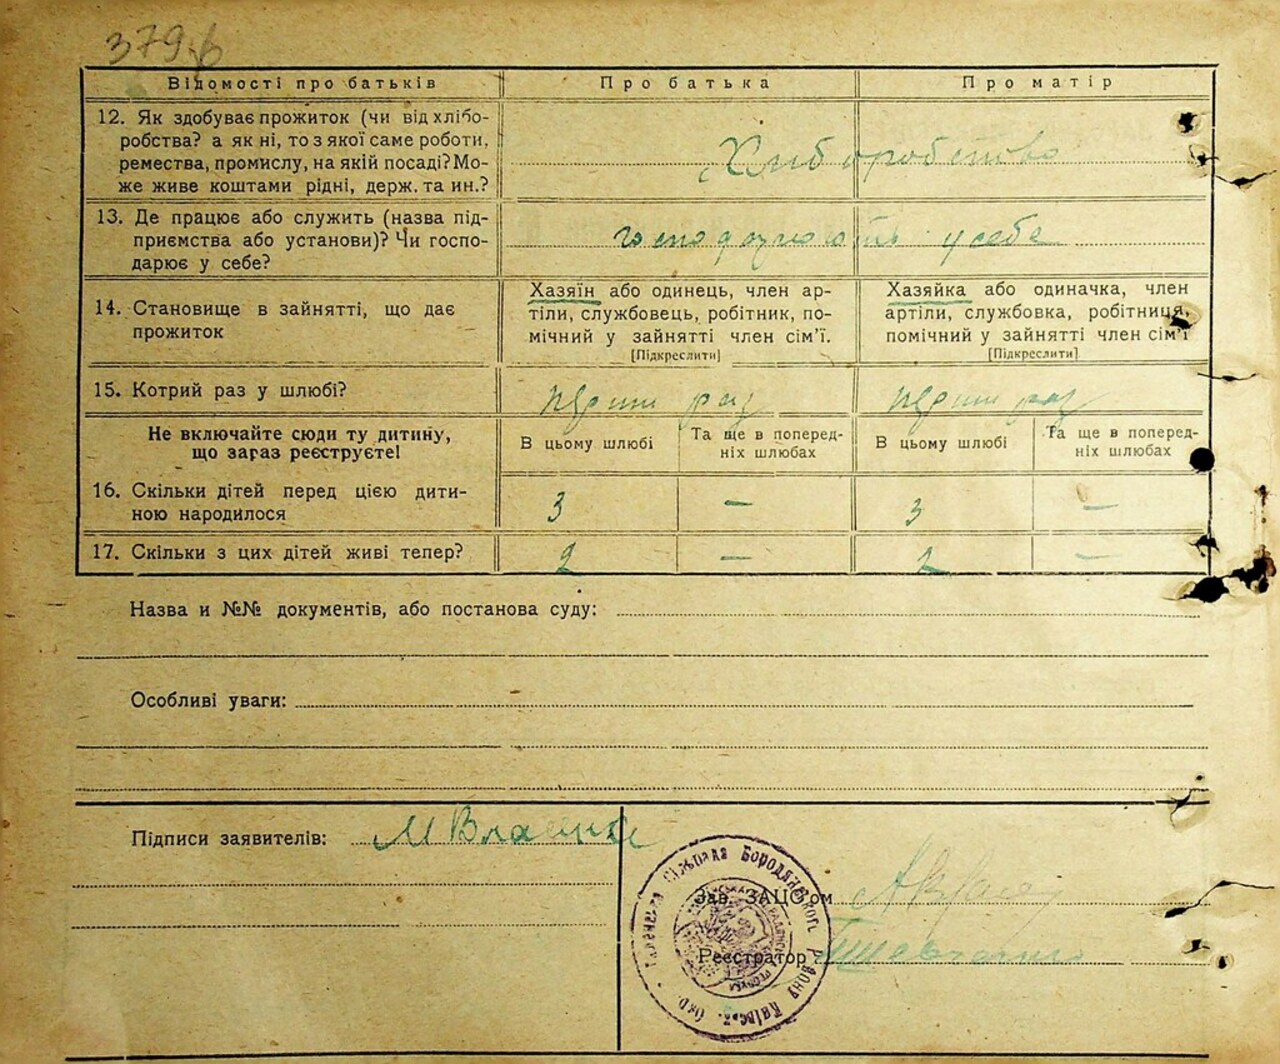 379.б
Відомості про батьків Про батька Про матір
12. Як здобуває прожиток (чи від хлібо-
робства? а як ні, то з якої саме роботи,
ремества, промислу, на якій посаді? Мо-
же живе коштами рідні, держ. та ин.?
Хліборобство
13. Де працює або служить (назва під-
приємства або установи)? Чи госпо-
дарює у себе?
господарюють у себе
14. Становище в зайнятті, що дає
прожиток
Хазяїн або одинець, член ар-
тілі, службовець, робітник, по-
мічний у зайнятті член сім'ї.
[Підкреслити]
Хазяйка або одиначка, член
артілі, службовка, робітниця,
помічний у зайнятті член сім'ї
[Підкреслити]
15. Котрий раз у шлюбі? перши раз перши раз
Не включайте сюди ту дитину,
що зараз реєструєте!
В цьому шлюбі
Та ще в поперед-
ніх шлюбах
В цьому шлюбі
Та ще в поперед-
ніх шлюбах
16. Скільки дітей перед цією дити-
ною народилося
3 — 3 —
17. Скільки з цих дітей живі тепер? 2 — 2 —
Назва и №№ документів, або постанова суду:
Особливі уваги:
Підписи заявителів: М Власенко
Зав. ЗАЦС'ом
Реєстратор
сільрада Бородянського Району Київськ. Окр.